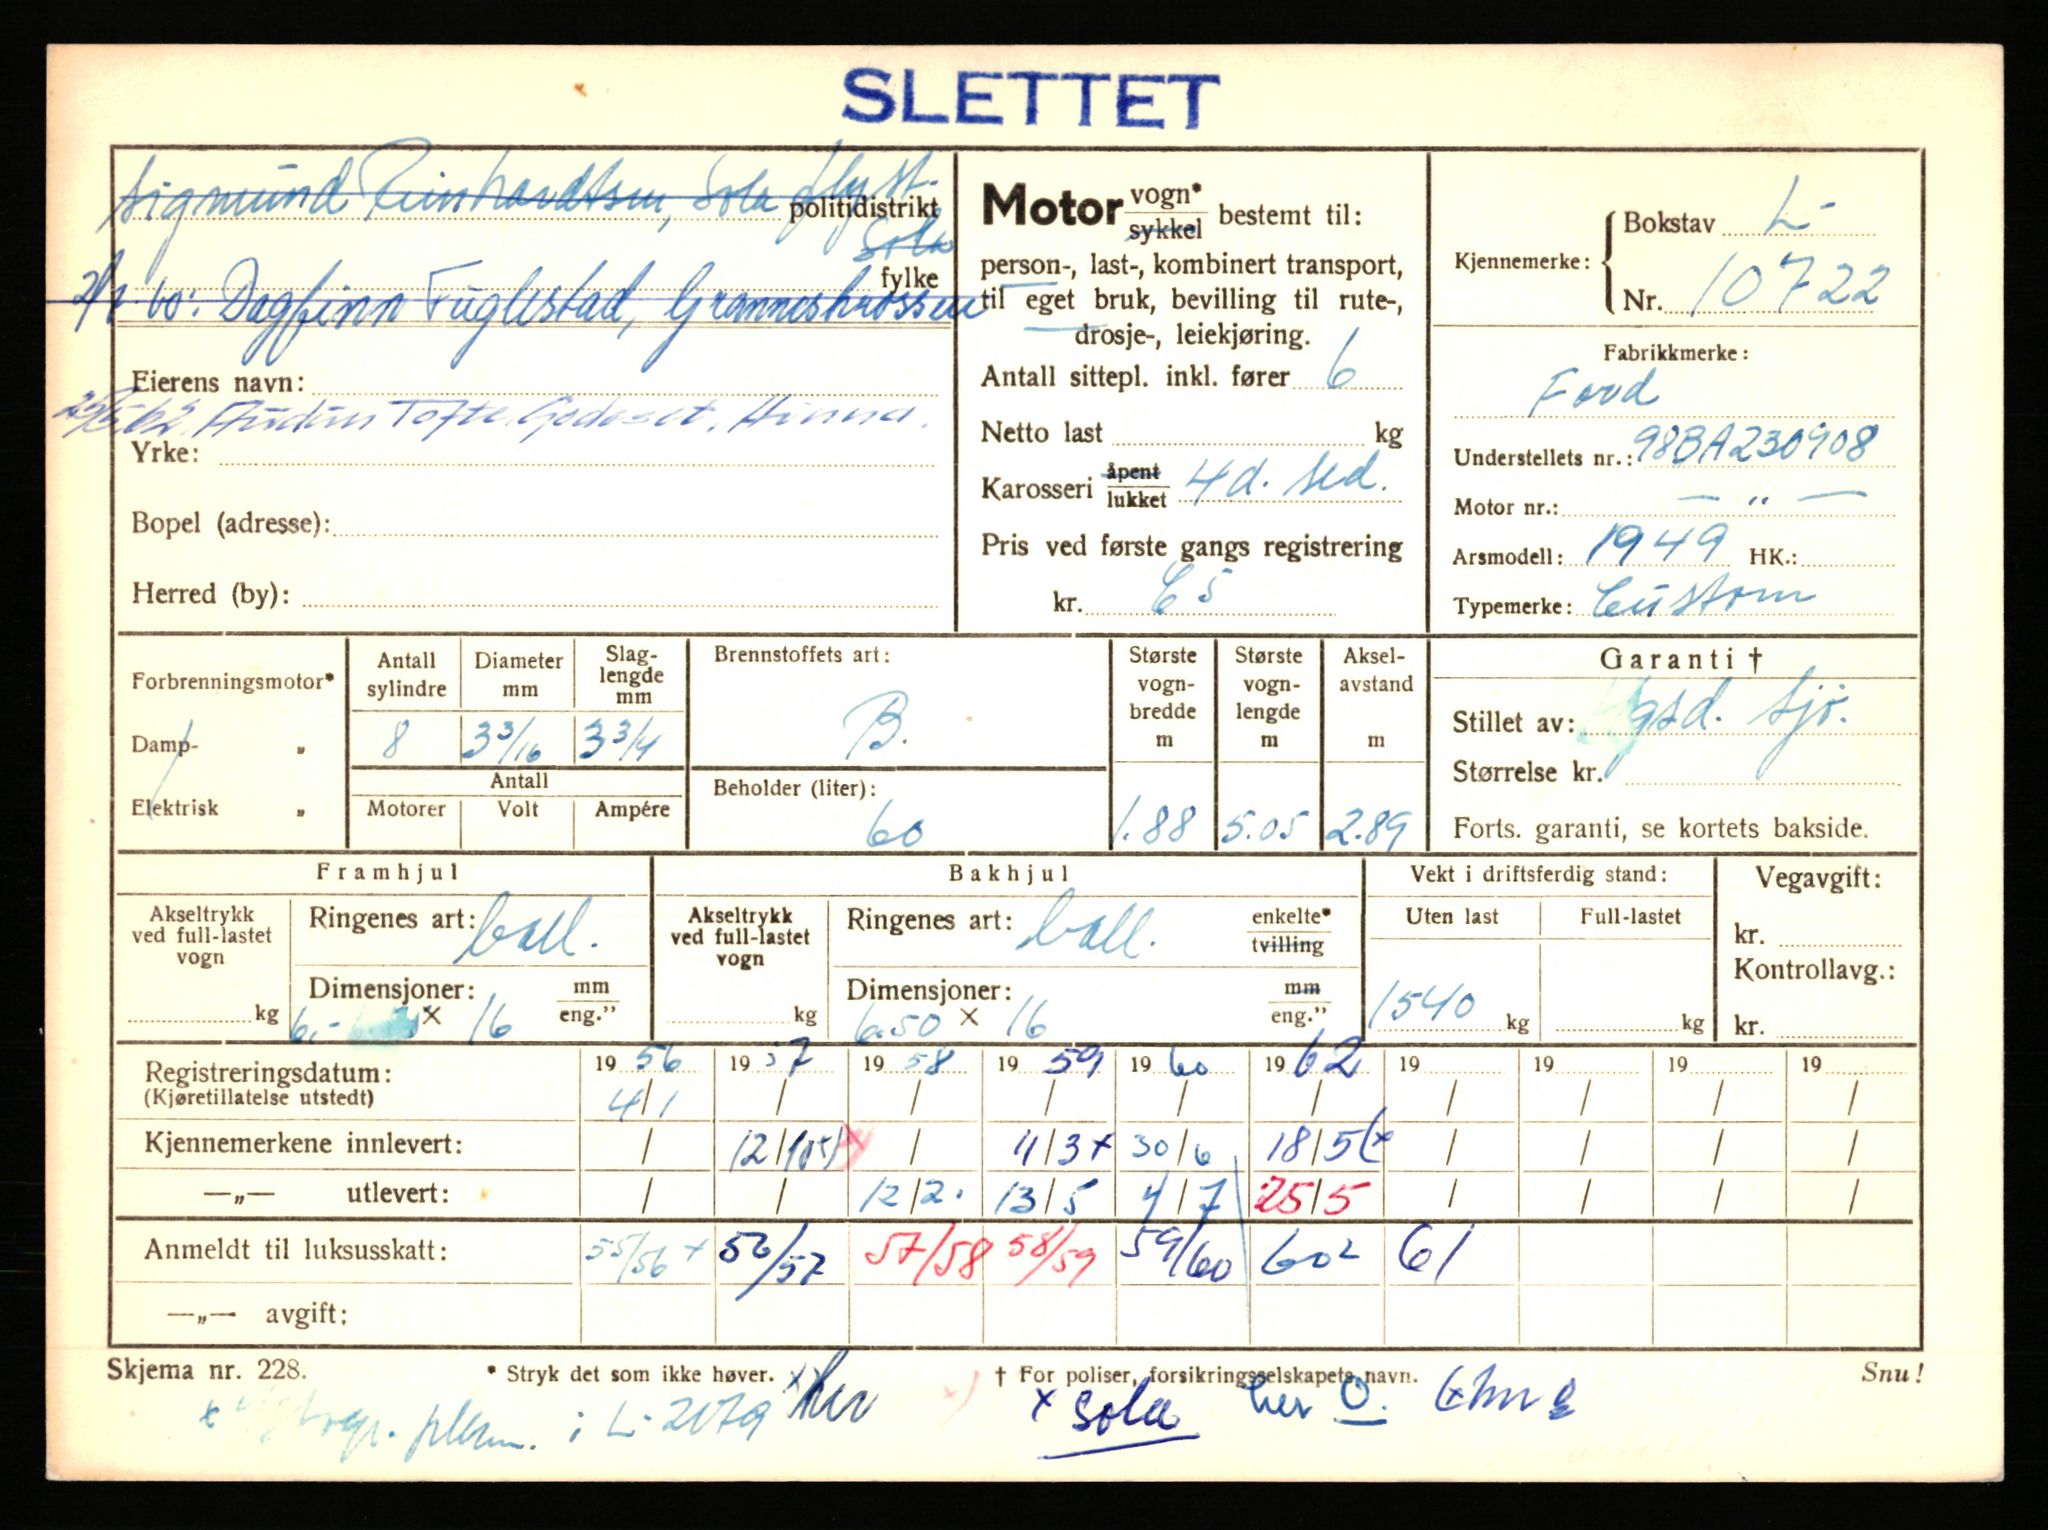 SLETTET
Sigmund Reinhardtsen, Sola flyst.
politidistrikt
Sola
fylke
60: Dagfinn Fuglestad, Granneskrossen
Eierens navn:
25/5 62. Audun Tofte, Godeset, Hinna.
Yrke:
Bopel (adresse):
Herred (by):
Motor vogn* sykkel bestemt til:
person-, last-, kombinert transport,
til eget bruk, bevilling til rute-,
drosje-, leiekjøring.
Antall sittepl. inkl. fører 6
Netto last kg
Karosseri åpent lukket 4d. sed.
Pris ved første gangs registrering
kr.
Kjennemerke: Bokstav L-
Nr. 10722
Fabrikkmerke:
Ford
Understellets nr.: 98BA230908
Motor nr.: — „ —
Arsmodell: 1949 HK.:
Typemerke: Custom
Forbrenningsmotor*
Damp- „
Elektrisk „
Antall sylindre 8
Diameter mm 3 3/16
Slaglengde mm 3 3/4
Antall
Motorer Volt Ampére
Brennstoffets art:
B.
Beholder (liter):
60
Største vognbredde m 1.88
Største vognlengde m 5.05
Akselavstand m 2.89
Garanti †
Stillet av: sjø.
Størrelse kr.
Forts. garanti, se kortets bakside.
Framhjul
Akseltrykk ved full-lastet vogn kg
Ringenes art: ball.
Dimensjoner: mm eng.” 6.- x 16
Bakhjul
Akseltrykk ved full-lastet vogn kg
Ringenes art: ball. enkelte* tvilling
Dimensjoner: mm eng.” 6.50 x 16
Vekt i driftsferdig stand:
Uten last Full-lastet
1540 kg kg
Vegavgift:
kr.
Kontrollavg.:
kr.
Registreringsdatum: 19 56 19 57 19 58 19 59 19 60 19 62 19 19 19 19
(Kjøretillatelse utstedt) 4/1 / / / / / / / / /
Kjennemerkene innlevert: / 12/ / 11/3 x 30/6 18/5 (x / / / /
—„— utlevert: / / 12/2. 13/5 4/7 25/5 / / / /
Anmeldt til luksusskatt: 55/56 x 56/57 57/58 58/59 59/60 60² 61
—„— avgift:
Skjema nr. 228. * Stryk det som ikke høver. † For poliser, forsikringsselskapets navn. Snu!
i L-2079 xher x Sola her O.